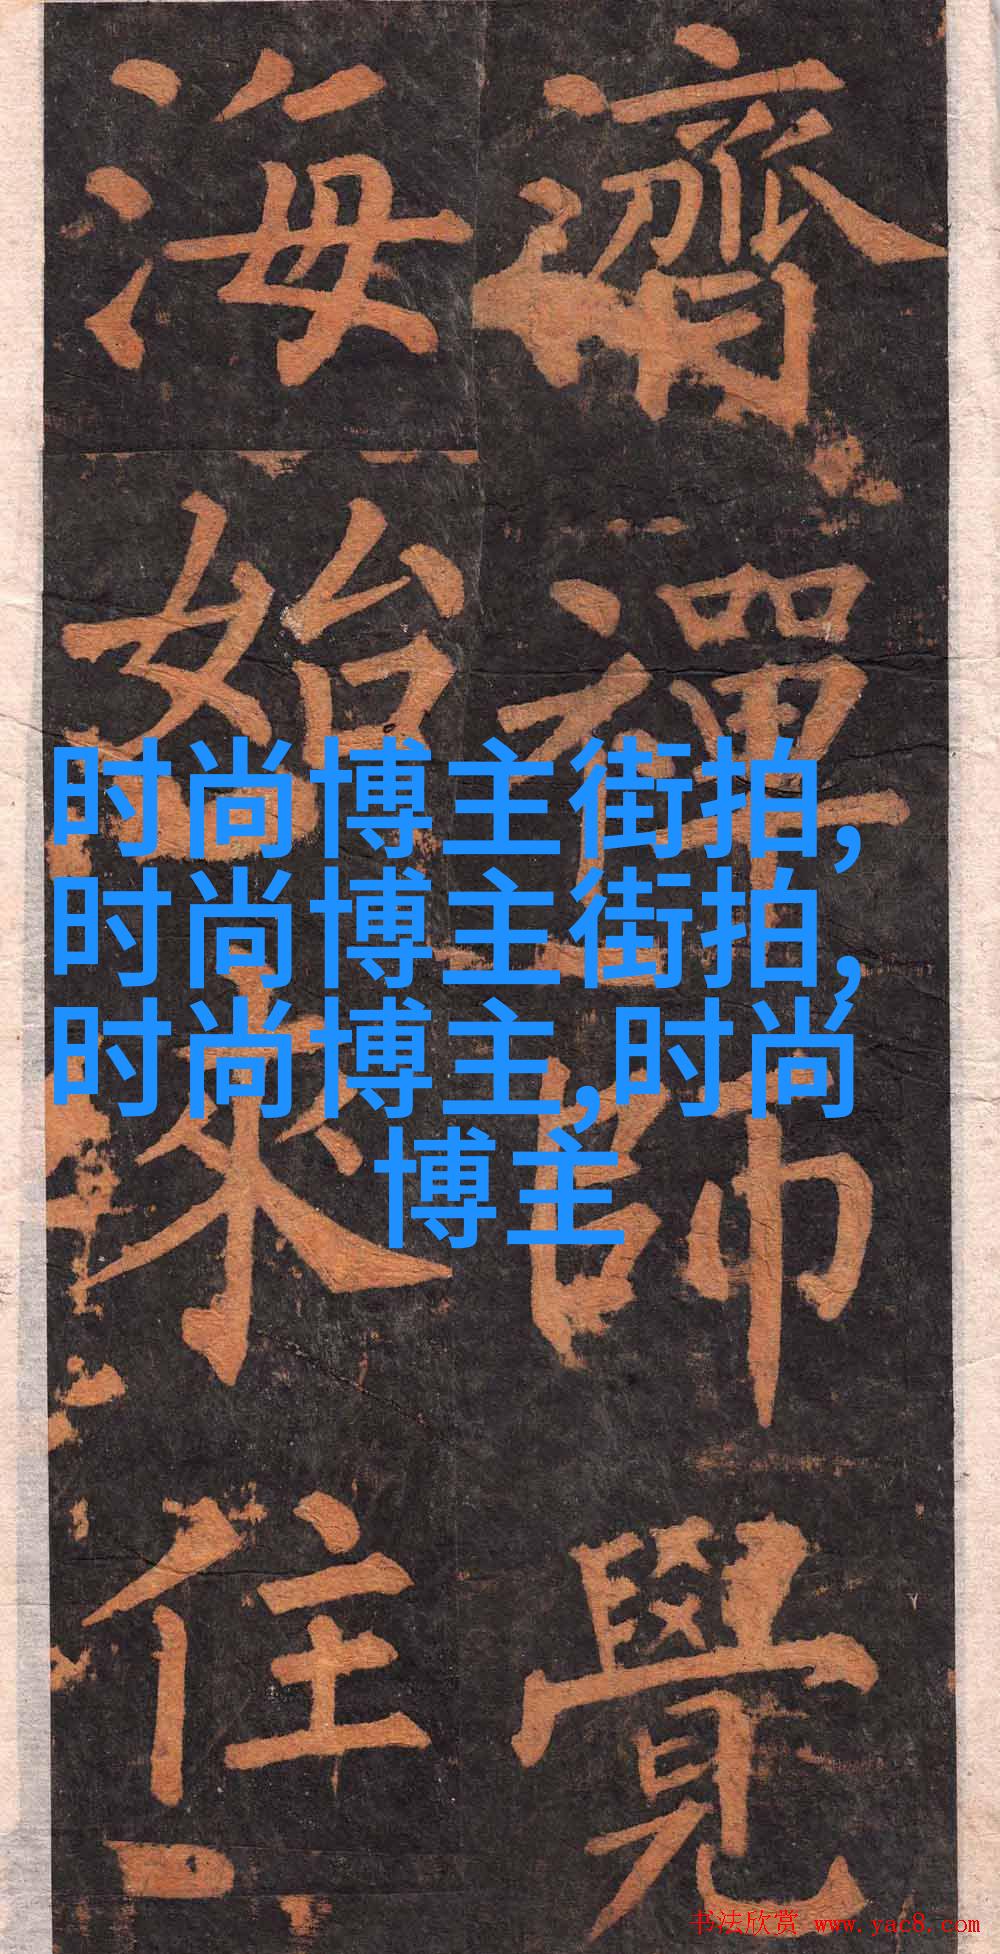 濟禪師覺
海始來住
时尚博主街拍,
时尚博主街拍,
时尚博主,时尚
博主
书法欣赏 www.yac8.com